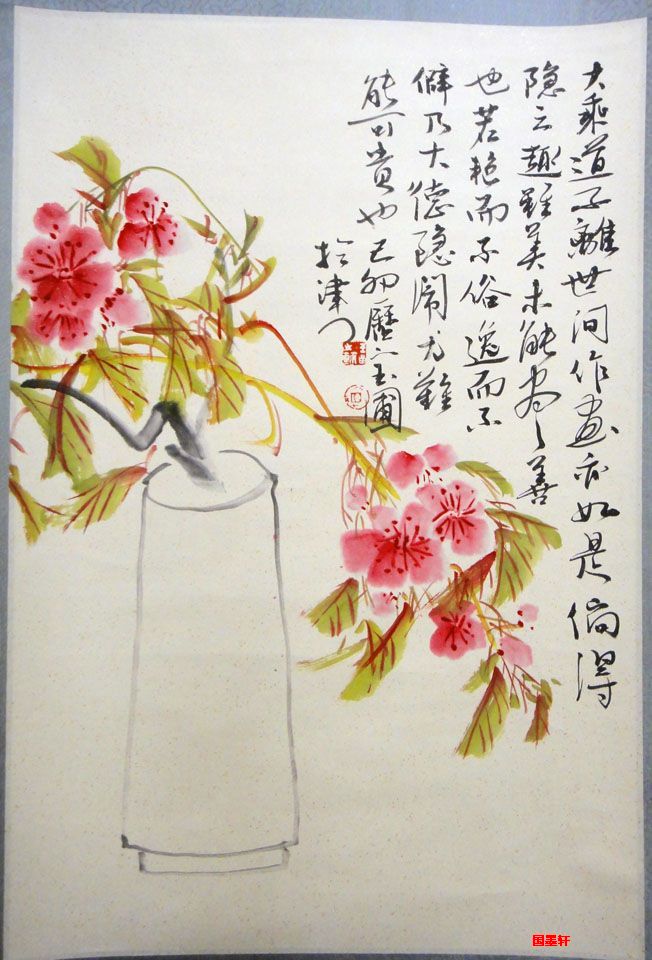 大乘道子離世间作画亦如是倘得
隐之趣虽美未能尽善
也若艳而不俗逸而不
僻乃大德隐闹方难
能可贵也己卯歷
玉圃
於津门
国墨轩